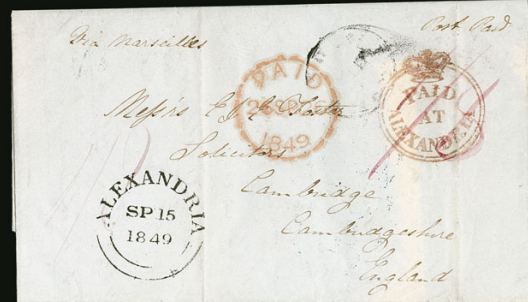 Via Marseilles
Post Paid
PAID
1849
PAID
AT
ALEXANDRIA
Messrs E & C Foster
Solicitors
Cambridge
Cambridgeshire
England
ALEXANDRIA
SP 15
1849